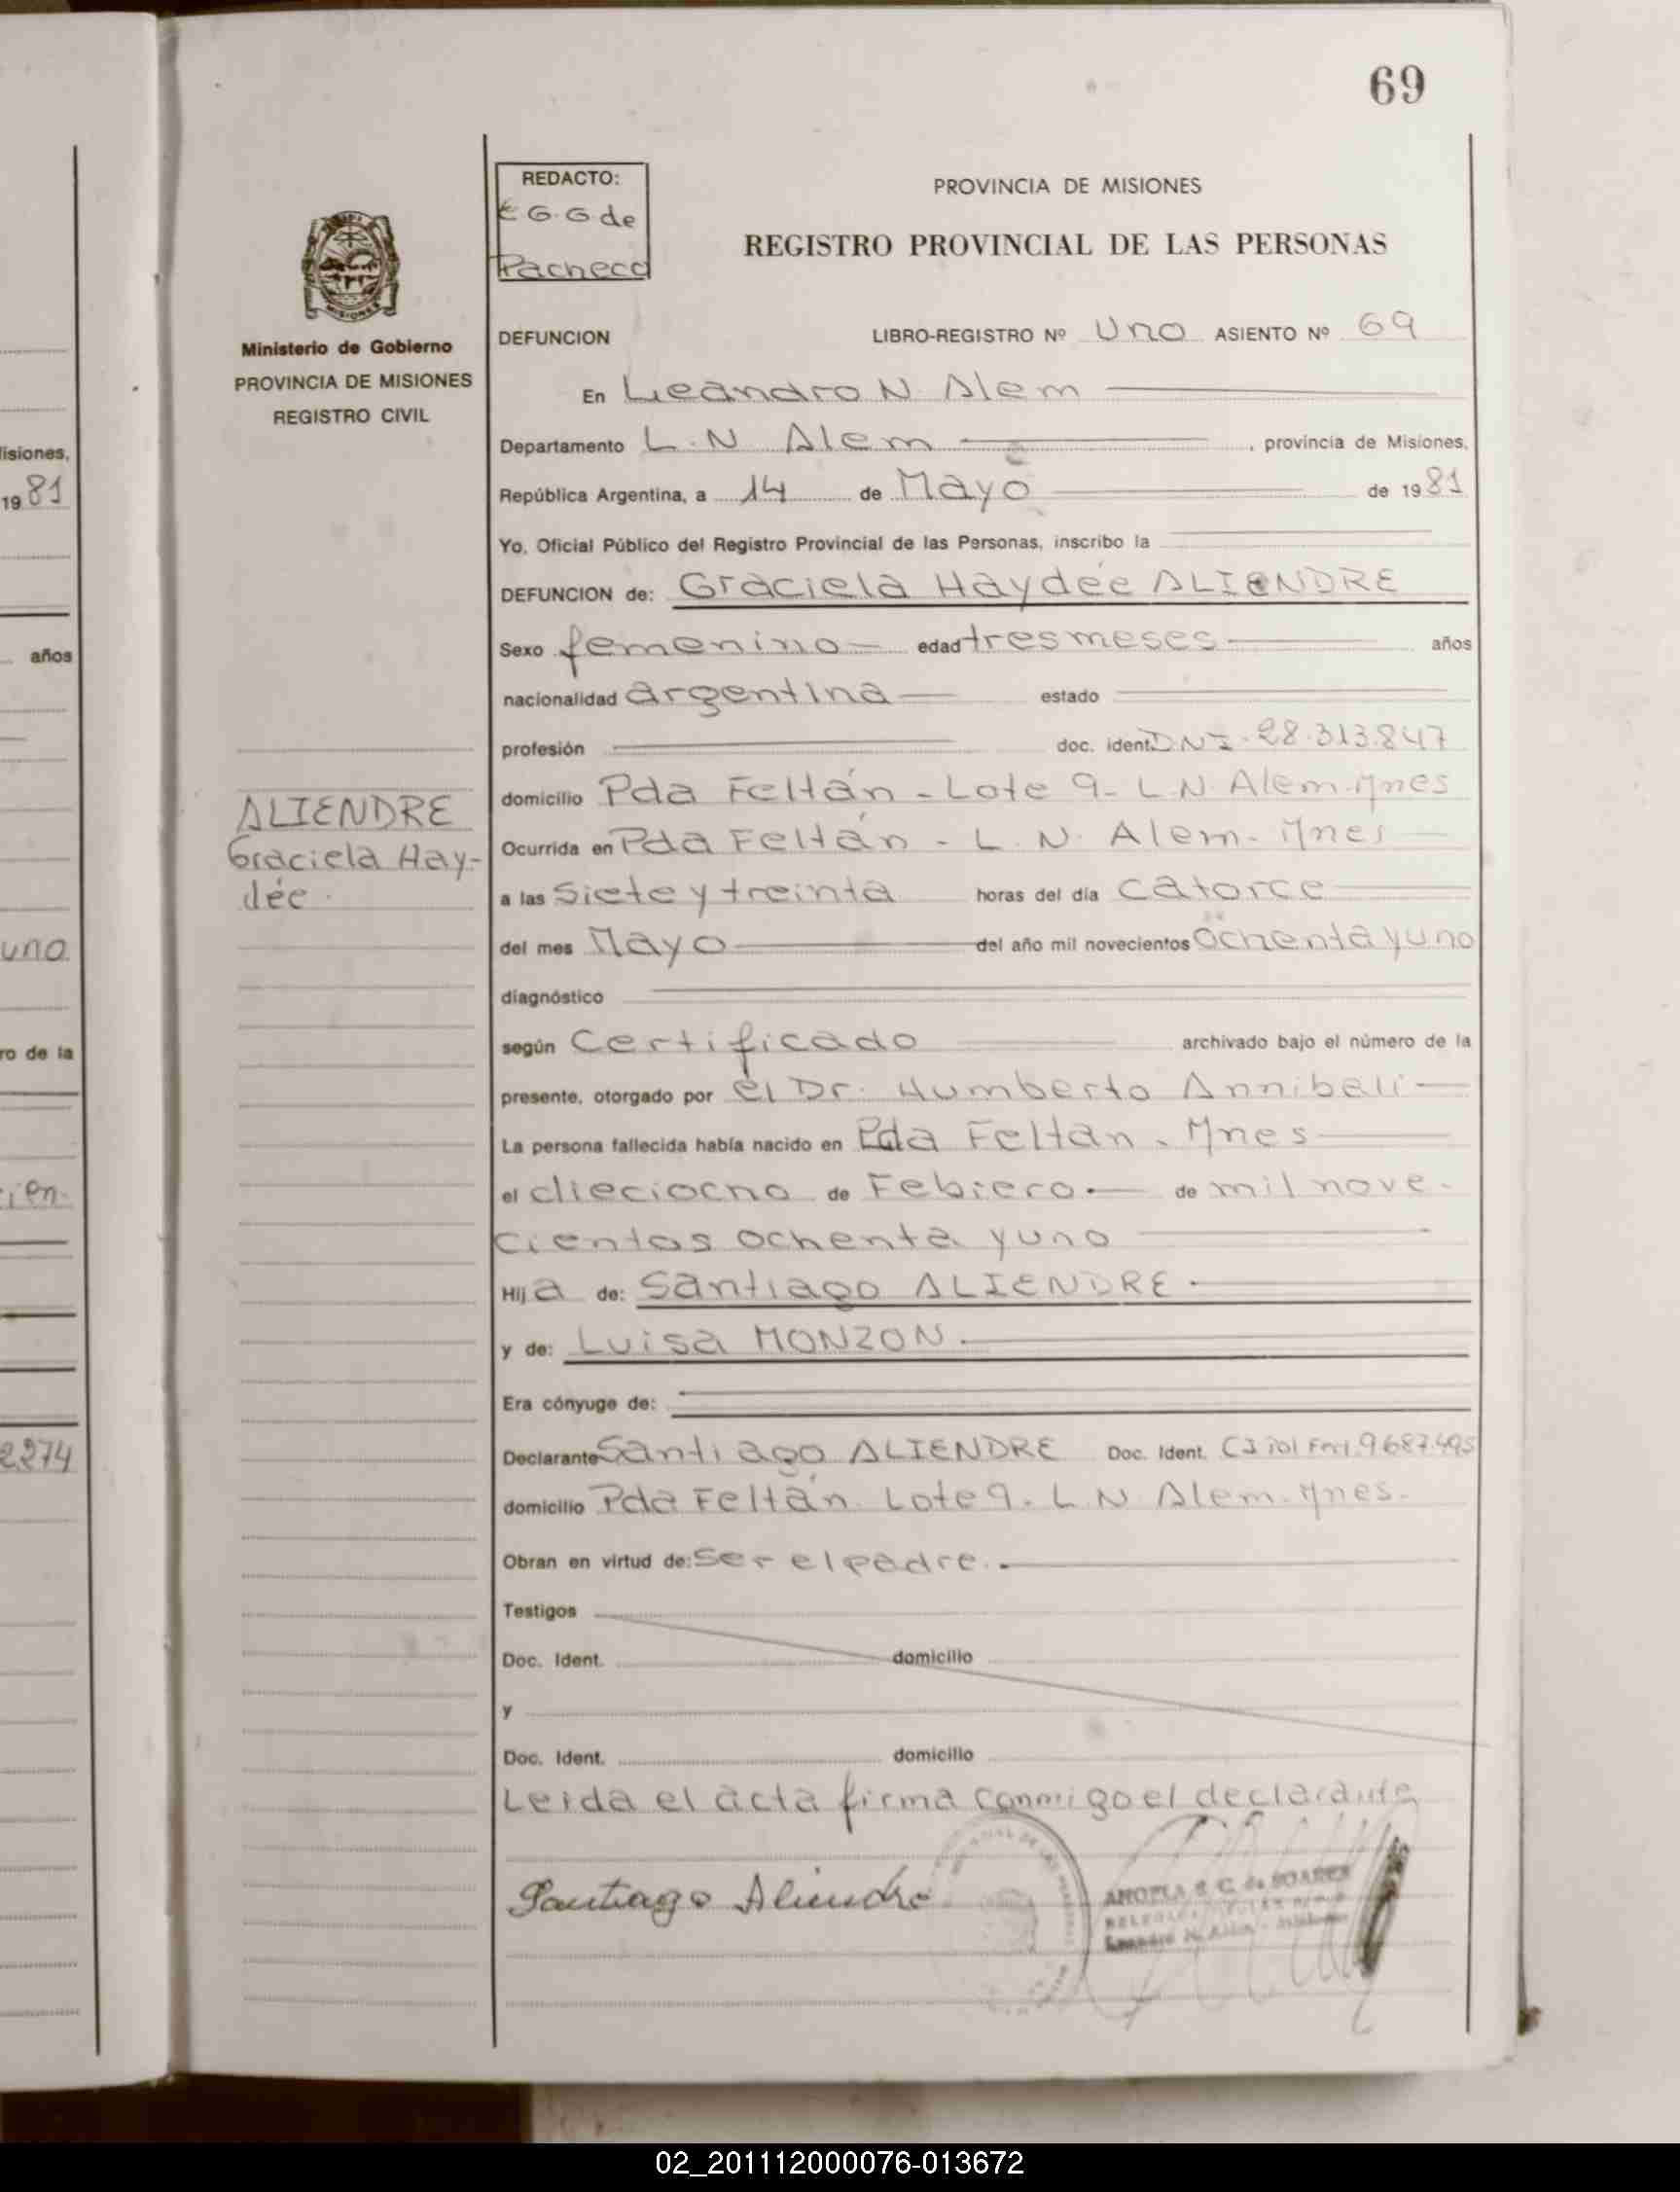 69
isiones,
1981
años
uno
ro de la
2274
MISIONES
Ministerio de Gobierno
PROVINCIA DE MISIONES
REGISTRO CIVIL
ALIENDRE
Graciela Hay-
dée.
REDACTO:
E G. G de
Pacheco
PROVINCIA DE MISIONES
REGISTRO PROVINCIAL DE LAS PERSONAS
DEFUNCION LIBRO-REGISTRO Nº Uno ASIENTO Nº 69
En Leandro N. Alem
Departamento L. N. Alem, provincia de Misiones,
República Argentina, a 14 de Mayo de 1981
Yo, Oficial Público del Registro Provincial de las Personas, inscribo la
DEFUNCION de: Graciela Haydée ALIENDRE
Sexo femenino edad tres meses años
nacionalidad argentina estado
profesión doc. ident. DNI. 28.313.847
domicilio Pda Feltán - Lote 9 - L N. Alem. Mnes
Ocurrida en Pda Feltán - L. N. Alem - Mnes
a las siete y treinta horas del día catorce
del mes Mayo del año mil novecientos ochenta y uno
diagnóstico
según certificado archivado bajo el número de la
presente, otorgado por el Dr. Humberto Annibali
La persona fallecida había nacido en Pda Feltán - Mnes
el dieciocho de Febrero de mil nove-
cientos ochenta y uno
Hija de: Santiago ALIENDRE.
y de: Luisa MONZON.
Era cónyuge de:
Declarante Santiago ALIENDRE Doc. Ident. CI Pol Fed. 9.687.495
domicilio Pda Feltán. Lote 9. L. N. Alem. Mnes.
Obran en virtud de: ser el padre.
Testigos
Doc. Ident. domicilio
y
Doc. Ident. domicilio
Leida el acta firma conmigo el declarante
Santiago Aliendre
S. C. de SOARES
Leandro N. Alem - Misiones
02_201112000076-013672